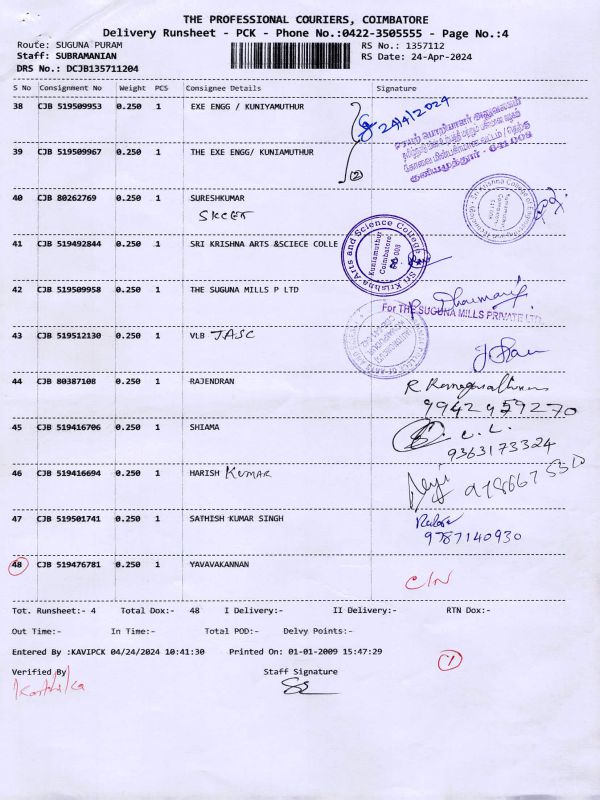 THE PROFESSIONAL COURIERS, COIMBATORE
Delivery Runsheet - PCK - Phone No.:0422-3505555 - Page No.:4
Route: SUGUNA PURAM RS No.: 1357112
Staff: SUBRAMANIAN RS Date: 24-Apr-2024
DRS No.: DCJB135711204
S No Consignment No Weight PCS Consignee Details Signature
38 CJB 519509953 0.250 1 EXE ENGG / KUNIYAMUTHUR 24/4/2024
39 CJB 519509967 0.250 1 THE EXE ENGG/ KUNIAMUTHUR
(2)
40 CJB 80262769 0.250 1 SURESHKUMAR
SKCET
41 CJB 519492844 0.250 1 SRI KRISHNA ARTS &SCIECE COLLE
Sri Krishna Arts and Science College
Kuniamuthur
Coimbatore
42 CJB 519509958 0.250 1 THE SUGUNA MILLS P LTD
For THE SUGUNA MILLS PRIVATE LTD
43 CJB 519512130 0.250 1 VLB JASC
44 CJB 80387108 0.250 1 RAJENDRAN
9942959270
45 CJB 519416706 0.250 1 SHIAMA
9363173324
46 CJB 519416694 0.250 1 HARISH KUMAR
47 CJB 519501741 0.250 1 SATHISH KUMAR SINGH
9787140930
48 CJB 519476781 0.250 1 YAVAVAKANNAN
C/N
Tot. Runsheet:- 4 Total Dox:- 48 I Delivery:- II Delivery:- RTN Dox:-
Out Time:- In Time:- Total POD:- Delvy Points:-
Entered By :KAVIPCK 04/24/2024 10:41:30 Printed On: 01-01-2009 15:47:29
(1)
Verified By Staff Signature
Karthika